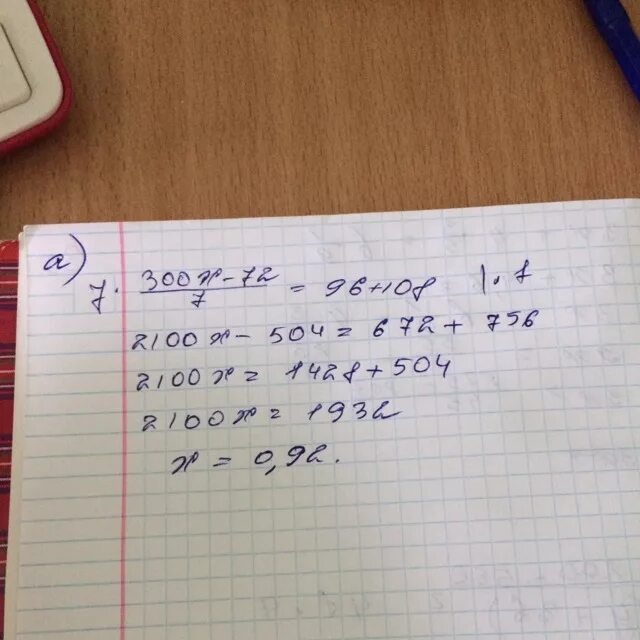 а)
7 · (300x - 72)/7 = 96 + 108 | · 7
2100x - 504 = 672 + 756
2100x = 1428 + 504
2100x = 1932
x = 0,92.